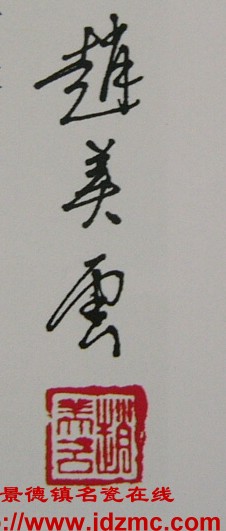 趙美雲
趙美雲
景德镇名瓷在线
://www.jdzmc.com